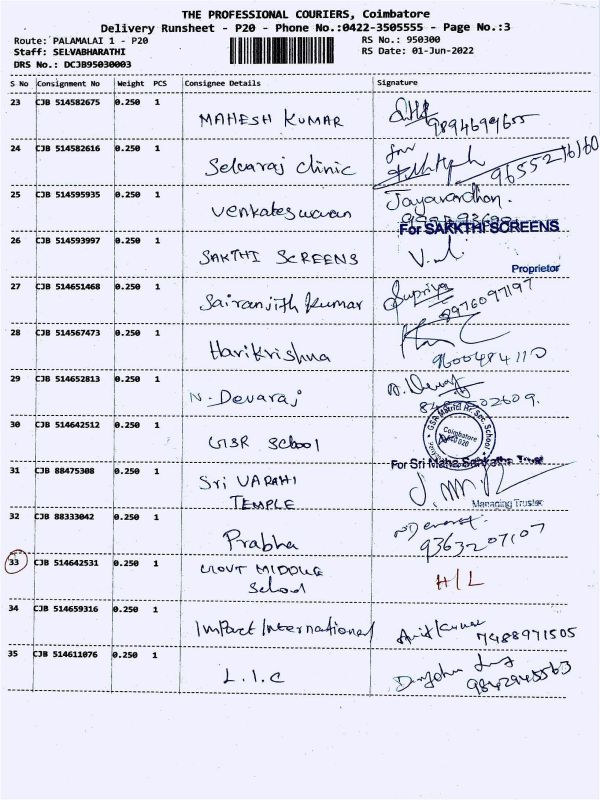 THE PROFESSIONAL COURIERS, Coimbatore
Delivery Runsheet - P20 - Phone No.:0422-3505555 - Page No.:3
Route: PALAMALAI 1 - P20
RS No.: 950300
Staff: SELVABHARATHI
RS Date: 01-Jun-2022
DRS No.: DCJB95030003
S No Consignment No Weight PCS Consignee Details Signature
23 CJB 514582675 0.250 1 MAHESH KUMAR 9894699655
24 CJB 514582616 0.250 1 Selvaraj clinic 9655276160
25 CJB 514595935 0.250 1 Venkateswaran Jayavardhan.
For SAKKTHI SCREENS
26 CJB 514593997 0.250 1 SAKTHI SCREENS
Proprietor
27 CJB 514651468 0.250 1 Sairanjith Kumar Supriya
8976097197
28 CJB 514567473 0.250 1 Harikrishna
9600484110
29 CJB 514652813 0.250 1 N. Devaraj
30 CJB 514642512 0.250 1 GSR School GSR Matric Hr Sec. School
Coimbatore
For Sri Maha
31 CJB 88475308 0.250 1 Sri VARAHI
TEMPLE
Managing Trustee
32 CJB 88333042 0.250 1 Prabha
9363207107
33 CJB 514642531 0.250 1 GOVT MIDDLE
School
H/L
34 CJB 514659316 0.250 1 Impact International Amit Kumar
7488971505
35 CJB 514611076 0.250 1 L.I.C
9842945563